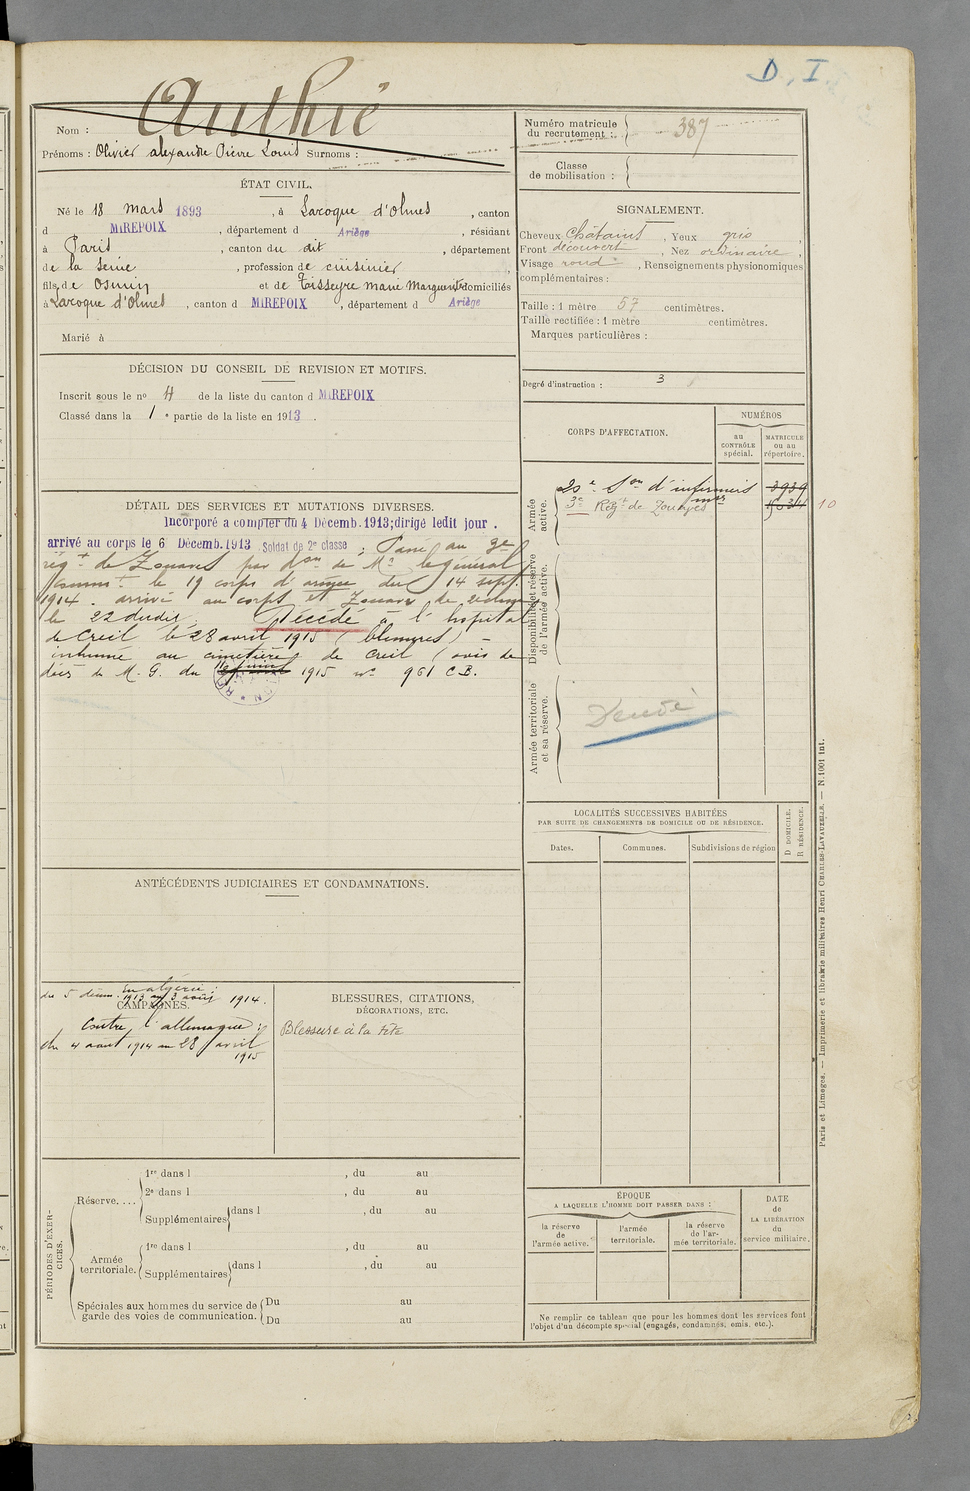 D. I.
Authié
Nom :
Prénoms : Olivier alexandre Pierre Louis Surnoms :
Numéro matricule du recrutement : 387
Classe de mobilisation :
ÉTAT CIVIL.
Né le 18 mars 1893, à Laroque d'Olmes, canton
d MIREPOIX, département d Ariège, résidant
à Paris, canton du dit, département
de la Seine, profession de cuisinier
fils de Osmin et de Tisseyre marie Marguerite domiciliés
à Laroque d'Olmes, canton d MIREPOIX, département d Ariège
Marié à
SIGNALEMENT.
Cheveux Châtains, Yeux gris,
Front découvert, Nez ordinaire,
Visage rond, Renseignements physionomiques
complémentaires :
Taille : 1 mètre 57 centimètres.
Taille rectifiée : 1 mètre centimètres.
Marques particulières :
Degré d'instruction : 3
DÉCISION DU CONSEIL DE REVISION ET MOTIFS.
Inscrit sous le nº 4 de la liste du canton d MIREPOIX
Classé dans la 1e partie de la liste en 1913.
CORPS D'AFFECTATION.
NUMÉROS
au CONTRÔLE spécial.
MATRICULE ou au répertoire.
Armée active.
20e Son d'infirmiers mres 3939
3e Régt de Zouaves 10
Disponibilité et réserve de l'armée active.
Armée territoriale et sa réserve.
Décédé
DÉTAIL DES SERVICES ET MUTATIONS DIVERSES.
Incorporé a compter du 4 Décemb. 1913; dirigé ledit jour.
arrivé au corps le 6 Décemb. 1913 Soldat de 2e classe ; Passé au 3e
régt de Zouaves par Don de Mr le général
Commt le 19 corps d'armée du 14 sept.
1914. arrivé au corps et Zouave de 2e classe
le 22 dudit. Décédé à l'hopital
de Creil le 28 avril 1915 (blessures) -
inhumé au cimetière de Creil (avis de
décès de M. G. du 1915 nº 961 C.B.
LOCALITÉS SUCCESSIVES HABITÉES
PAR SUITE DE CHANGEMENTS DE DOMICILE OU DE RÉSIDENCE.
Dates.
Communes.
Subdivisions de région
D DOMICILE.
R RÉSIDENCE.
ANTÉCÉDENTS JUDICIAIRES ET CONDAMNATIONS.
CAMPAGNES.
En algérie :
du 5 décem. 1913 au 3 août 1914.
Contre l'allemagne :
du 4 aout 1914 au 28 avril
1915
BLESSURES, CITATIONS,
DÉCORATIONS, ETC.
Blessure à la tête
PÉRIODES D'EXERCICES.
Réserve....
1re dans l , du au
2e dans l , du au
Supplémentaires dans l , du au
Armée territoriale.
1re dans l , du au
Supplémentaires dans l , du au
Spéciales aux hommes du service de garde des voies de communication.
Du au
Du au
ÉPOQUE
A LAQUELLE L'HOMME DOIT PASSER DANS :
la réserve de l'armée active.
l'armée territoriale.
la réserve de l'armée territoriale.
DATE DE LA LIBÉRATION du service militaire.
Ne remplir ce tableau que pour les hommes dont les services font
l'objet d'un décompte spécial (engagés, condamnés, omis, etc.).
Paris et Limoges. — Imprimerie et librairie militaires Henri CHARLES-LAVAUZELLE. — N. 1001 Int.